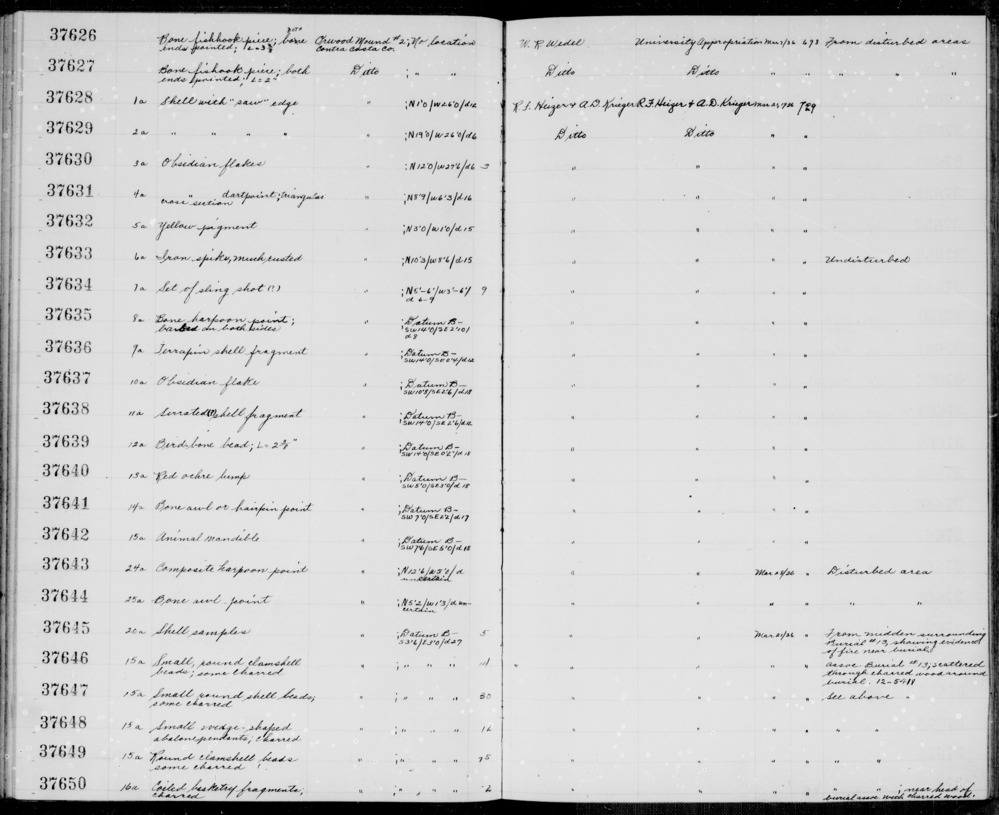 37626 Bone fishhook piece; bone Orwood Mound #2; No location W. R. Wedel University Appropriation Mar 7/36 693 From disturbed areas
ends pointed; L=3 Contra Costa Co.
37627 Bone fishook piece; both Ditto ; " " Ditto Ditto " " " " "
ends pointed; L=2
37628 1a Shell with "saw" edge " ; N1'0/W26'0/d12 R. F. Heizer & A. D. Krieger R. F. Heizer & A. D. Krieger 729
37629 2a " " " " " ; N19'0/W26'0/d6 Ditto Ditto " "
37630 3a Obsidian flakes " ; N12'0/W27'6/d6 3 " " " "
37631 4a " dartpoint; triangular " ; N8'9/W6'3/d16 " " " "
cross section
37632 5a Yellow pigment " ; N3'0/W1'0/d15 " " " "
37633 6a Iron spike, much rusted " ; N10'3/W8'6/d15 " " " " Undisturbed
37634 7a Set of sling shot (?) " ; N5'-6'/W3'-6'/ 9 " " " "
d 6-9
37635 8a Bone harpoon point; " ; Datum B- " " " "
barbed on both sides SW14'0/SE2'10/
d8
37636 9a Terrapin shell fragment " ; Datum B- " " " "
SW14'0/SE0'4/d12
37637 10a Obsidian flake " ; Datum B- " " " "
SW10'8/SE2'6/d18
37638 11a Serrated (?) shell fragment " ; Datum B- " " " "
SW14'0/SE2'6/d12
37639 12a Bird bone bead; L=2⅞" " ; Datum B- " " " "
SW14'0/SE0'2"/d18
37640 13a Red ochre lump " ; Datum B- " " " "
SW5'0/SE3'0/d18
37641 14a Bone awl or hairpin point " ; Datum B- " " " "
SW7'0/SE2'2/d17
37642 15a Animal mandible " ; Datum B- " " " "
SW7'6/SE5'0/d18
37643 24a Composite harpoon point " ; N12'6/W5'0/d " " " Disturbed area
uncertain
37644 25a Bone awl point " ; N5'2/W1'3/d un- " " " " " "
certain
37645 20a Shell samples " ; Datum B- 5 " " Mar 21/36 " From midden surrounding
S3'6/E3'0/d27 Burial #13, showing evidence
of fire near burial.
37646 15a Small, round clamshell " ; " " " " " " " Assoc. Burial #13; scattered
beads; some charred through charred wood around
burial. 12-5411
37647 15a Small round shell beads; " ; " " " 50 " " " " See above "
some charred
37648 15a Small wedge-shaped " ; " " " " " " " " " "
abalone pendants; charred
37649 15a Round clamshell beads " ; " " " " " " " " "
some charred
37650 16a Coiled basketry fragments; " ; " " " 2 " " " " " " ; near head of
charred burial assoc. with charred wood.